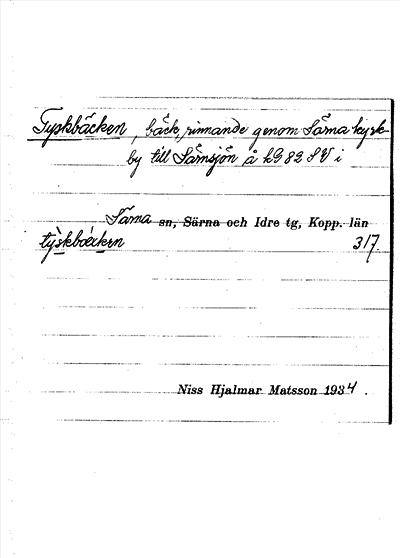 Tyskbäcken, bäck, rinnande genom Särna kyrk-
by till Särnsjön å kG 82 SV i
Särna sn, Särna och Idre tg, Kopp. län
tỳskbæ̀cken 317.
Niss Hjalmar Matsson 1934.